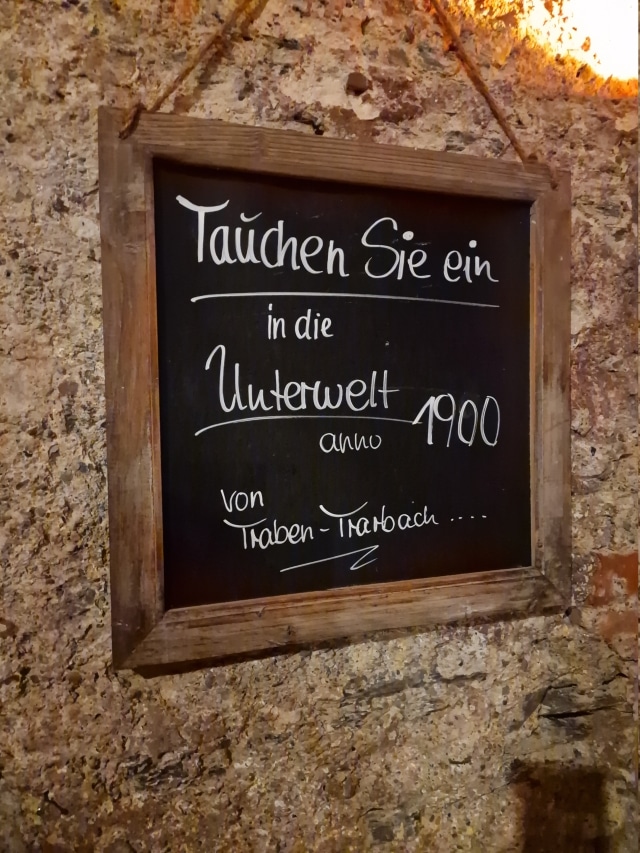 Tauchen Sie ein
in die
Unterwelt
anno 1900
von
Traben-Trarbach ....